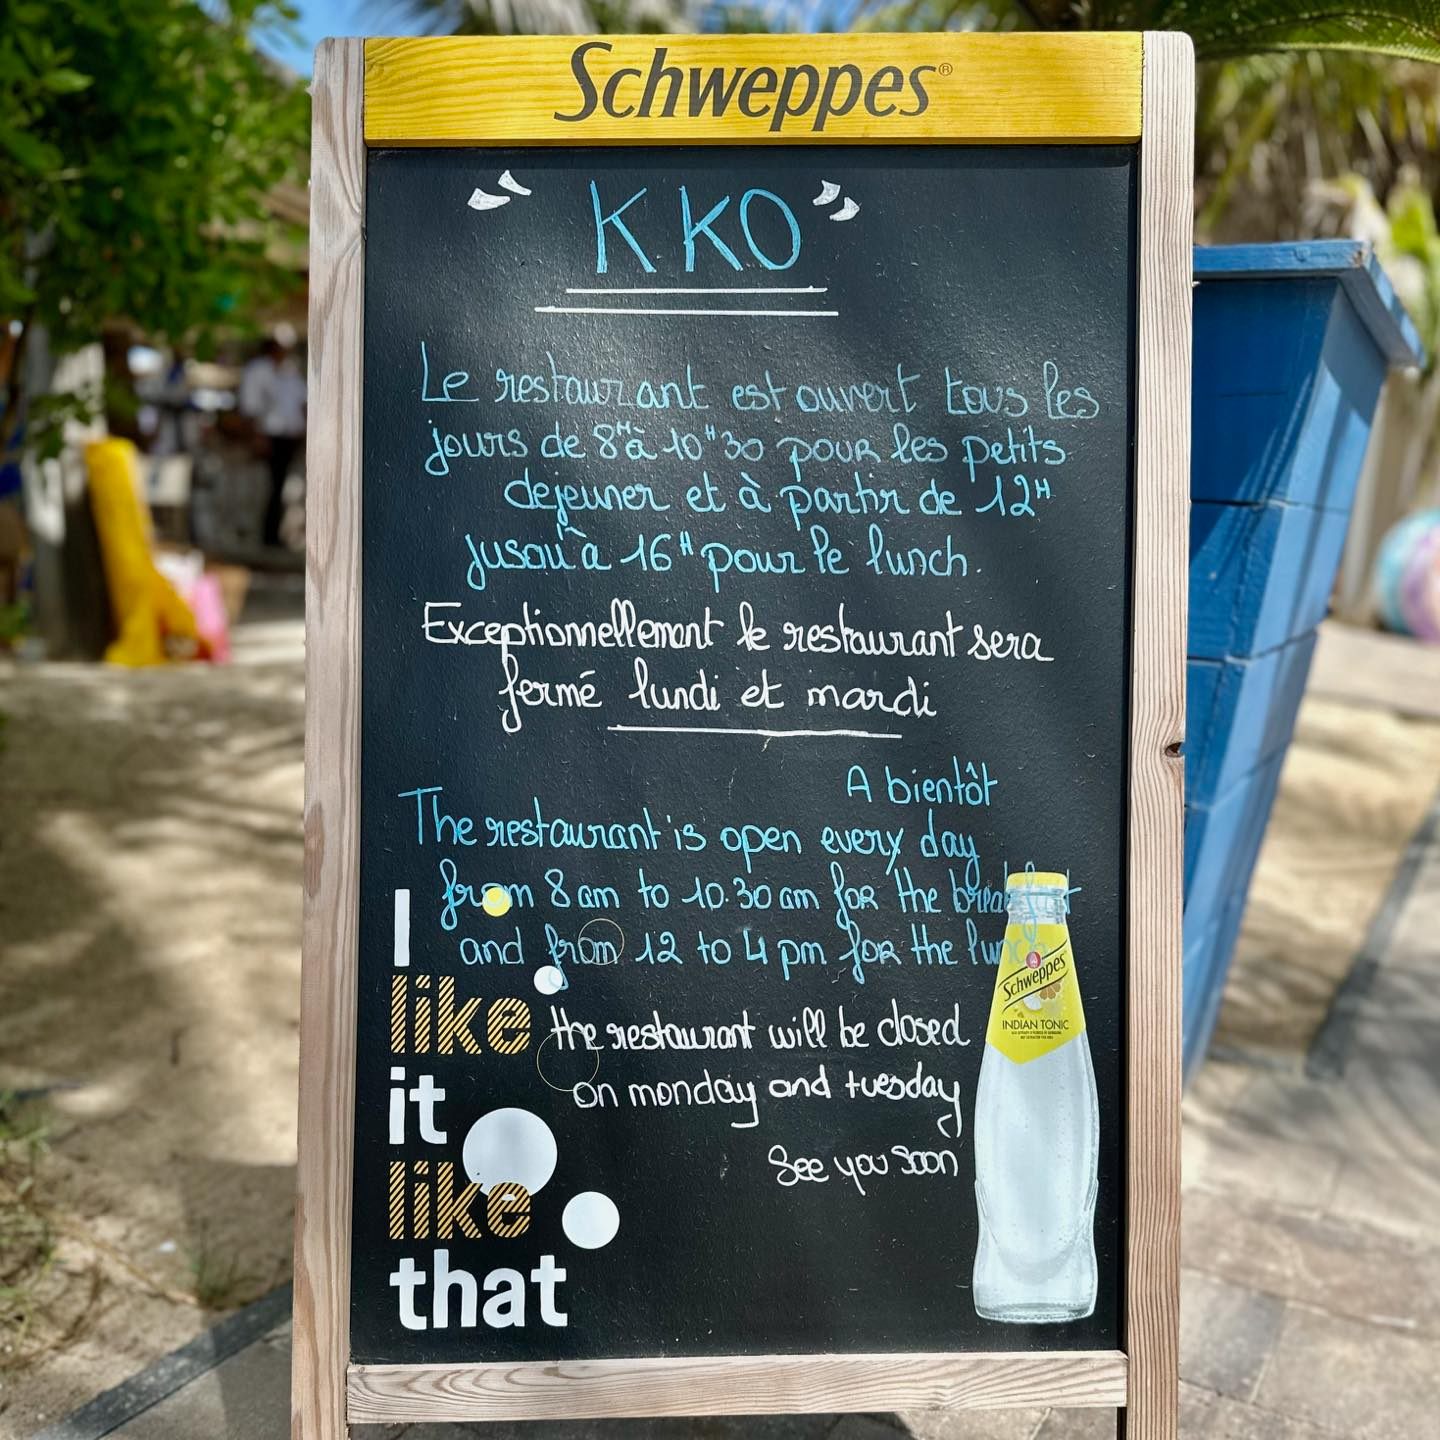 Schweppes®
" KKO "
Le restaurant est ouvert tous les
jours de 8H à 10H30 pour les petits
dejeuner et à partir de 12H
jusqu'à 16H pour le lunch.
Exceptionnellement le restaurant sera
fermé lundi et mardi
A bientôt
The restaurant is open every day
from 8 am to 10.30 am for the breakfast
and from 12 to 4 pm for the lunch
the restaurant will be closed
on monday and tuesday
See you soon
I
like
it
like
that
Schweppes
INDIAN TONIC